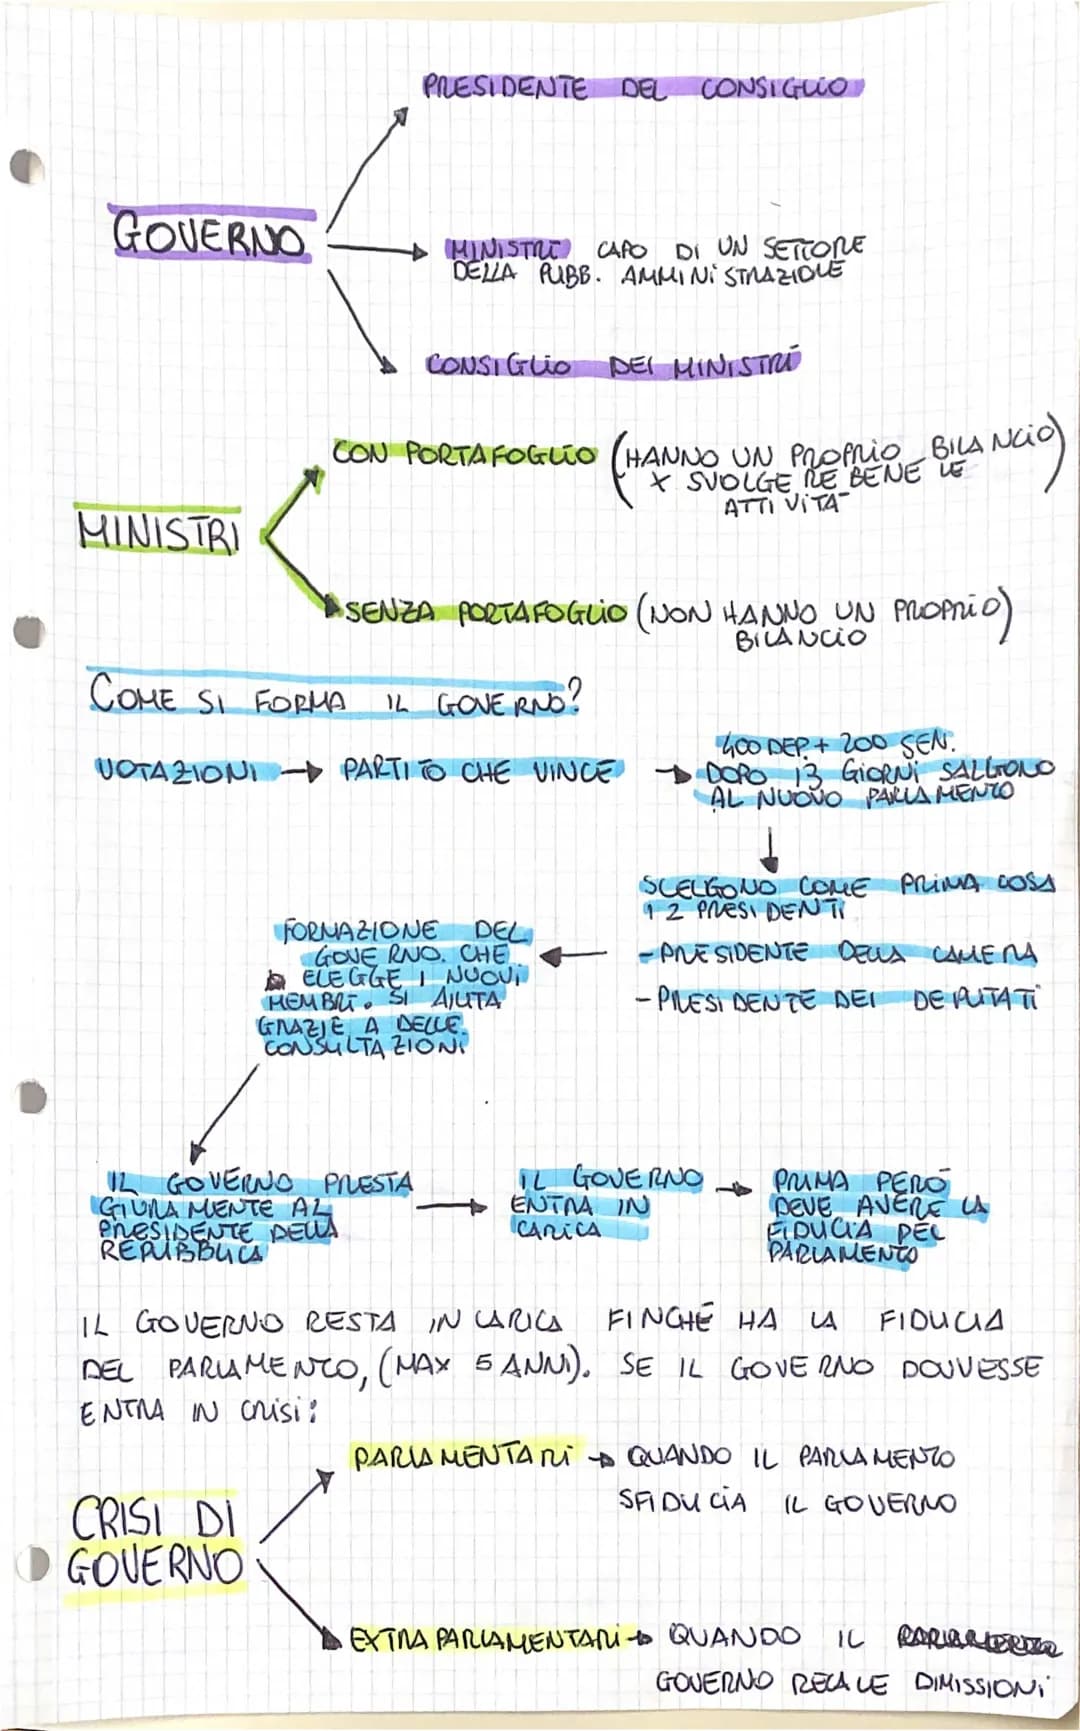 PRESIDENTE DEL CONSIGLIO
GOVERNO
MINISTRI CAPO DI UN SETTORE
DELLA PUBB. AMMINISTRAZIOLE
CONSIGLIO DEI MINISTRI
CON PORTAFOGLIO (HANNO UN PROPRIO BILANCIO)
X SVOLGERE BENE LE
ATTIVITA'
MINISTRI
SENZA PORTAFOGLIO (NON HANNO UN PROPRIO)
BILANCIO
COME SI FORMA IL GOVERNO?
VOTAZIONI → PARTITO CHE VINCE →
400 DEP. + 200 SEN.
DOPO 13 GIORNI SALGONO
AL NUOVO PARLAMENTO
SCELGONO COME PRIMA COSA
I 2 PRESIDENTI
- PRESIDENTE DELLA CAMERA
- PRESIDENTE DEI DEPUTATI
FORMAZIONE DEL
GOVERNO. CHE
ELEGGE I NUOVI
MEMBRI. SI AIUTA
GRAZIE A DELLE
CONSULTAZIONI
IL GOVERNO PRESTA
GIURAMENTE AL
PRESIDENTE DELLA
REPUBBLICA
→ IL GOVERNO
ENTRA IN
CARICA
→ PRIMA PERÒ
DEVE AVERE LA
FIDUCIA DEL
PARLAMENTO
IL GOVERNO RESTA IN CARICA FINCHÉ HA LA FIDUCIA
DEL PARLAMENTO, (MAX 5 ANNI). SE IL GOVERNO DOVVESSE
ENTRA IN CRISI:
PARLAMENTARI → QUANDO IL PARLAMENTO
SFIDUCIA IL GOVERNO
CRISI DI
GOVERNO
EXTRA PARLAMENTARI → QUANDO IL
GOVERNO RECA LE DIMISSIONI